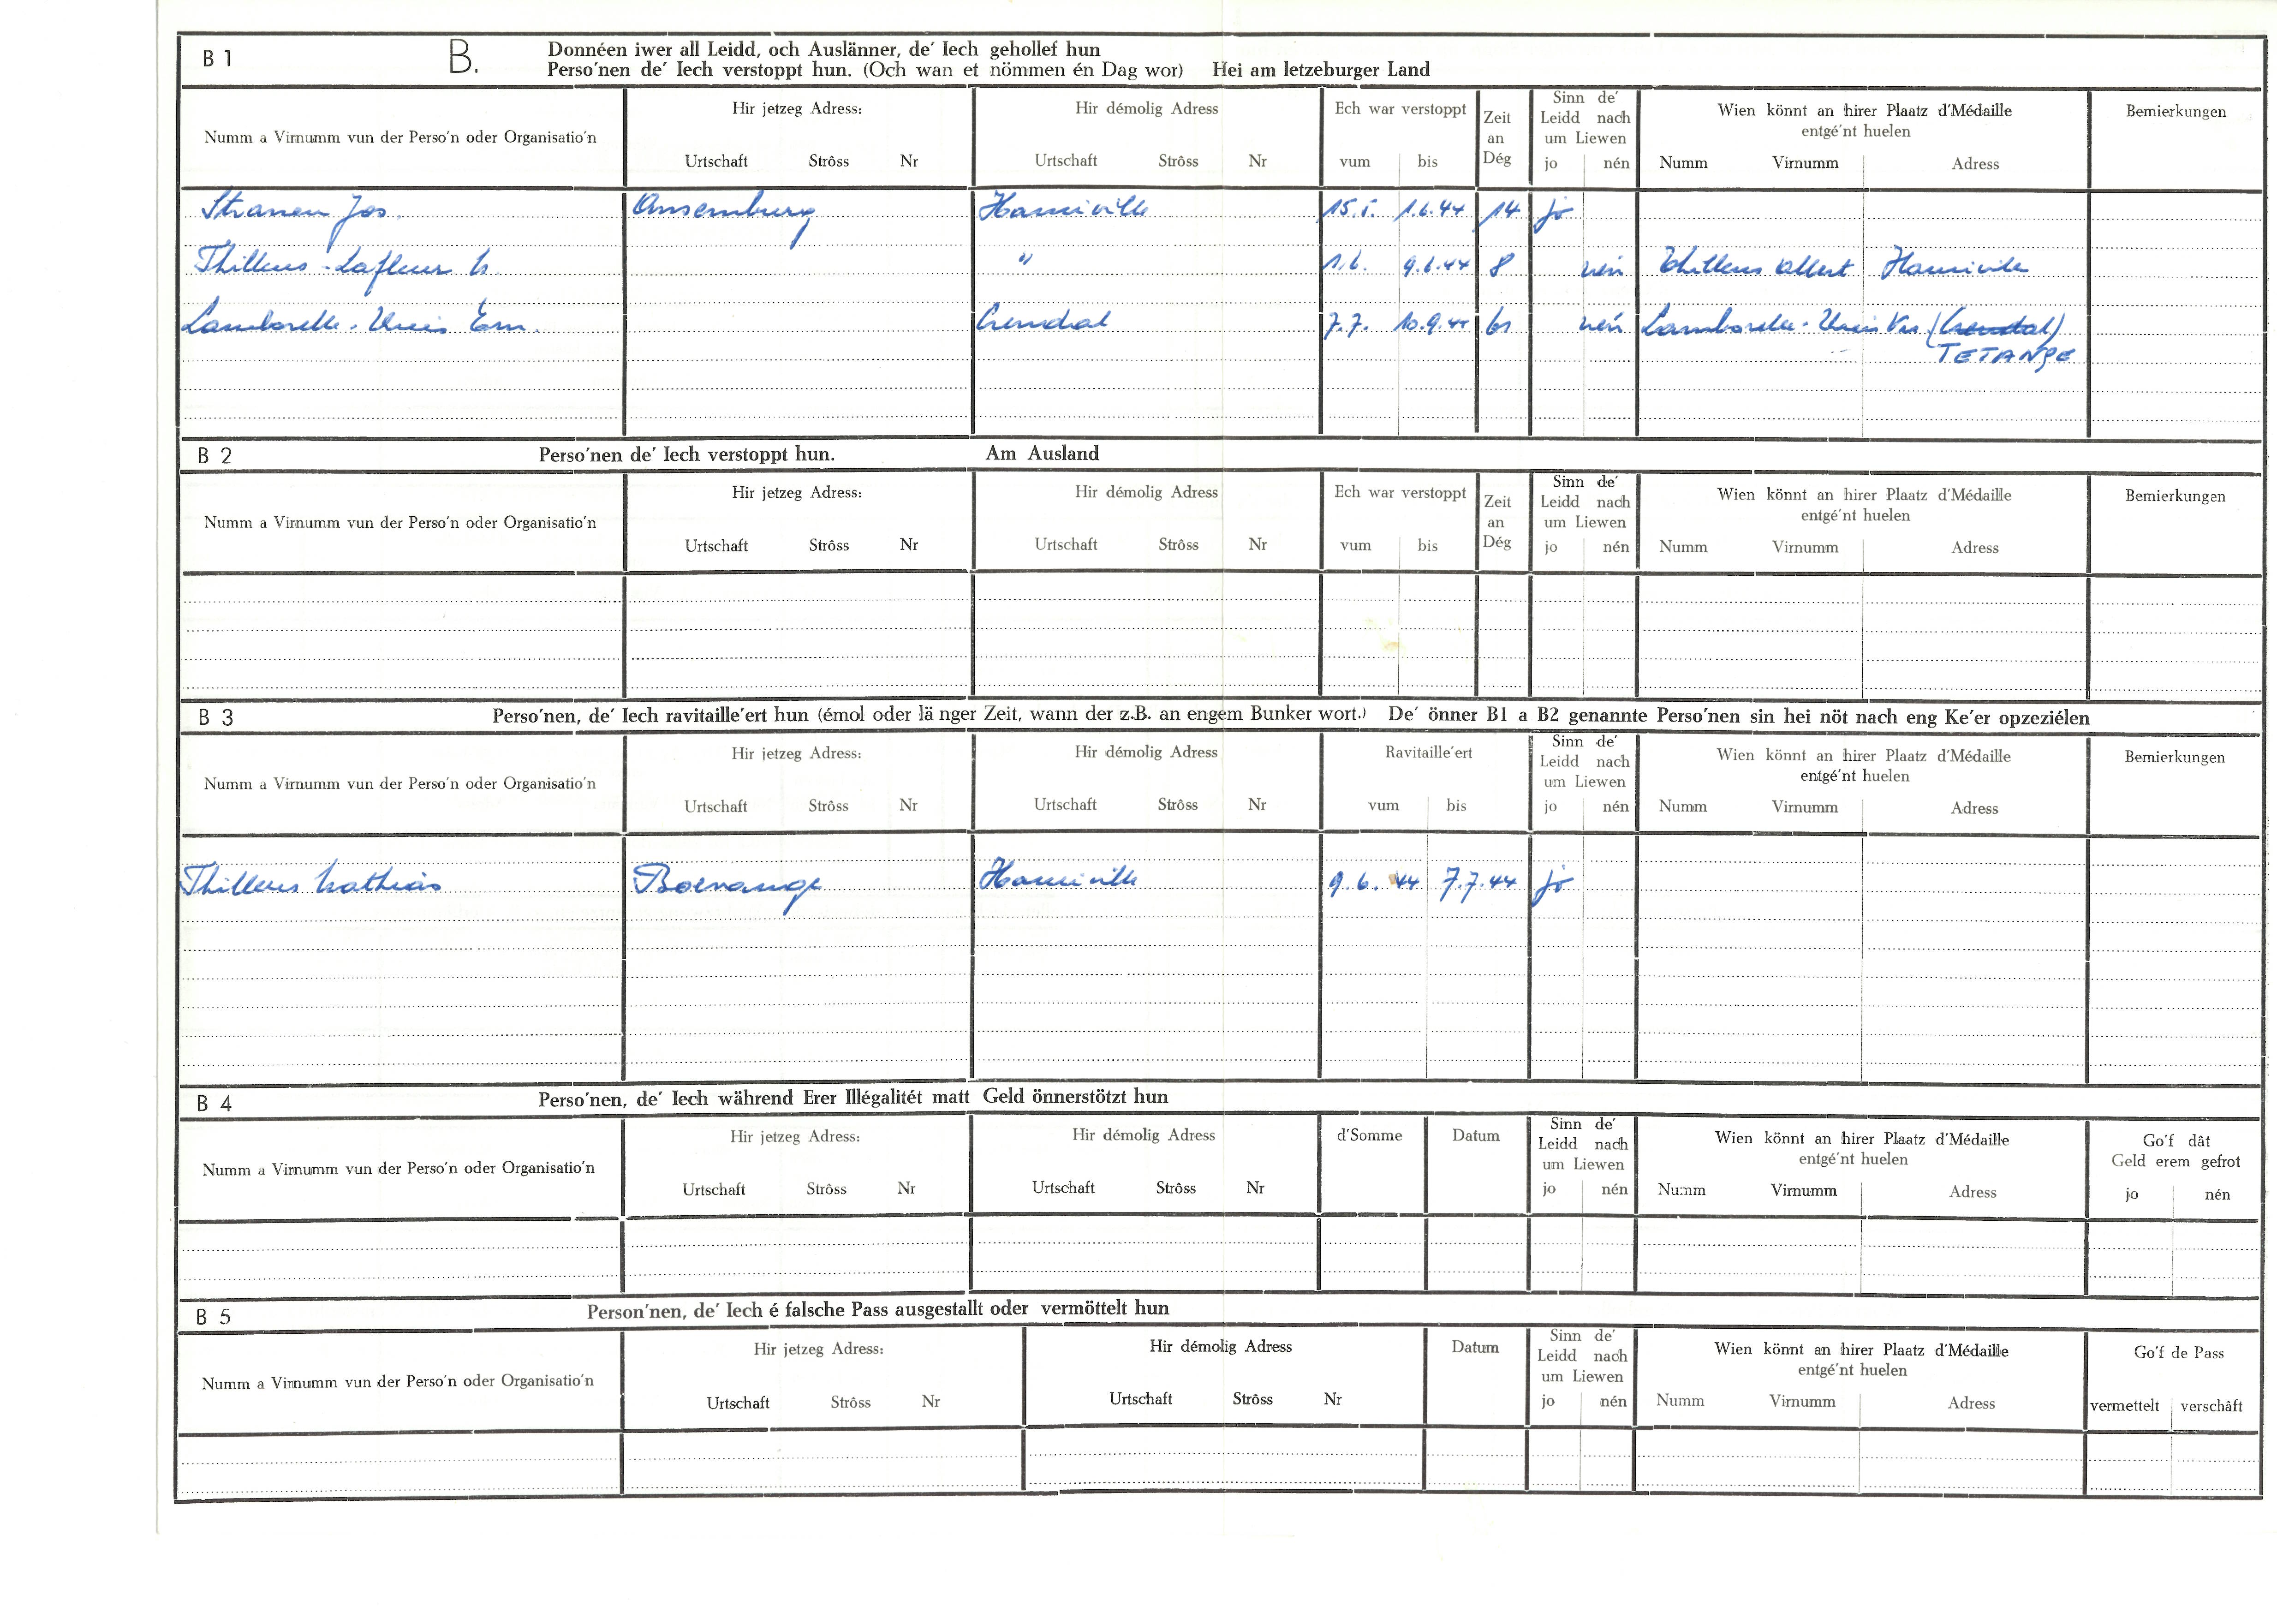 B 1 B. Donnéen iwer all Leidd, och Auslänner, de' Iech gehollef hun
Perso'nen de' Iech verstoppt hun. (Och wan et nömmen én Dag wor) Hei am letzeburger Land
Numm a Virnumm vun der Perso'n oder Organisatio'n
Hir jetzeg Adress:
Urtschaft Strôss Nr
Hir démolig Adress
Urtschaft Strôss Nr
Ech war verstoppt
vum bis
Zeit
an
Dég
Sinn de'
Leidd nach
um Liewen
jo nén
Wien könnt an hirer Plaatz d'Médaille
entgé'nt huelen
Numm Virnumm Adress
Bemierkungen
Stranen Jos. Ansemburg Hamiville 15.5. 1.6.44 14 jo
Thillens-Lafleur " 1.6. 9.6.44 8 nén Thillens Albert Hamiville
Lamborelle- Em. Crendal 7.7. 10.9.44 nén Lamborelle- (Crendal)
TETANGE
B 2 Perso'nen de' Iech verstoppt hun. Am Ausland
Numm a Virnumm vun der Perso'n oder Organisatio'n
Hir jetzeg Adress:
Urtschaft Strôss Nr
Hir démolig Adress
Urtschaft Strôss Nr
Ech war verstoppt
vum bis
Zeit
an
Dég
Sinn de'
Leidd nach
um Liewen
jo nén
Wien könnt an hirer Plaatz d'Médaille
entgé'nt huelen
Numm Virnumm Adress
Bemierkungen
B 3 Perso'nen, de' Iech ravitaille'ert hun (émol oder lä nger Zeit, wann der z.B. an engem Bunker wort.) De' önner B1 a B2 genannte Perso'nen sin hei nöt nach eng Ke'er opzeziélen
Numm a Virnumm vun der Perso'n oder Organisatio'n
Hir jetzeg Adress:
Urtschaft Strôss Nr
Hir démolig Adress
Urtschaft Strôss Nr
Ravitaille'ert
vum bis
Sinn de'
Leidd nach
um Liewen
jo nén
Wien könnt an hirer Plaatz d'Médaille
entgé'nt huelen
Numm Virnumm Adress
Bemierkungen
Thillens Mathias Boevange Hamiville 9.6. 44 7.7.44 jo
B 4 Perso'nen, de' Iech während Erer Illégalitét matt Geld önnerstötzt hun
Numm a Virnumm vun der Perso'n oder Organisatio'n
Hir jetzeg Adress:
Urtschaft Strôss Nr
Hir démolig Adress
Urtschaft Strôss Nr
d'Somme
Datum
Sinn de'
Leidd nach
um Liewen
jo nén
Wien könnt an hirer Plaatz d'Médaille
entgé'nt huelen
Numm Virnumm Adress
Go'f dât
Geld erem gefrot
jo nén
B 5 Person'nen, de' Iech é falsche Pass ausgestallt oder vermöttelt hun
Numm a Virnumm vun der Perso'n oder Organisatio'n
Hir jetzeg Adress:
Urtschaft Strôss Nr
Hir démolig Adress
Urtschaft Strôss Nr
Datum
Sinn de'
Leidd nach
um Liewen
jo nén
Wien könnt an hirer Plaatz d'Médaille
entgé'nt huelen
Numm Virnumm Adress
Go'f de Pass
vermettelt verschâft